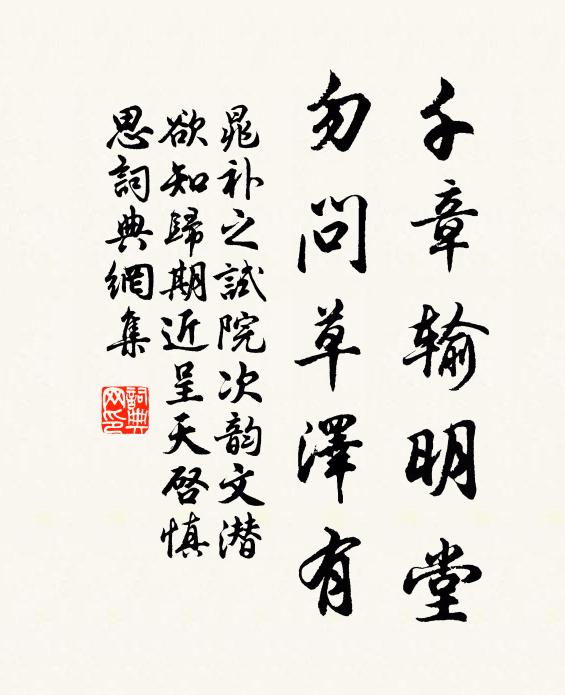 千章輸明堂
勿問草澤有
晁补之試院次韵文潜
欲知歸期近呈天啓慎
思詞典網集
詞典
网印